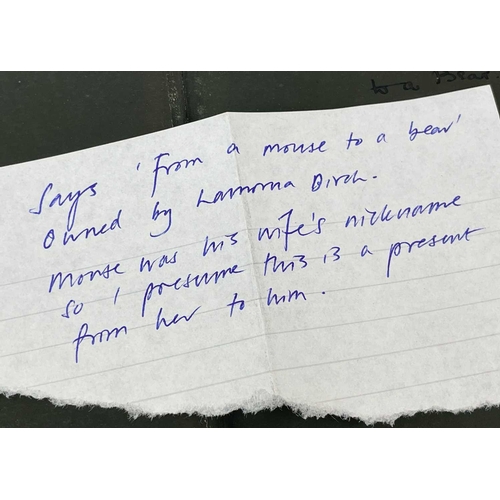 to a Bear
Says 'From a mouse to a bear'
Owned by Lamorna Birch.
Mouse was his wife's nickname
so I presume this is a present
from her to him.